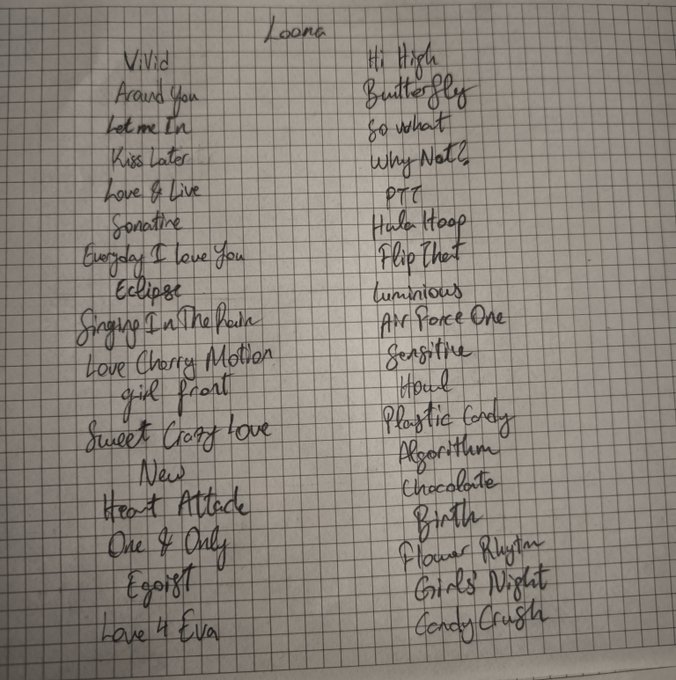 Loona
ViVid
Around You
Let me In
Kiss Later
Love & Live
Sonatine
Everyday I Love You
Eclipse
Singing In The Rain
Love Cherry Motion
girl front
Sweet Crazy Love
New
Heart Attack
One & Only
Egoist
Love 4 Eva
Hi High
Butterfly
So what
Why Not?
PTT
Hula Hoop
Flip That
Luminious
Air Force One
Sensitive
Howl
Plastic Candy
Algorithm
Chocolate
Birth
Flower Rhytm
Girls' Night
Candy Crush